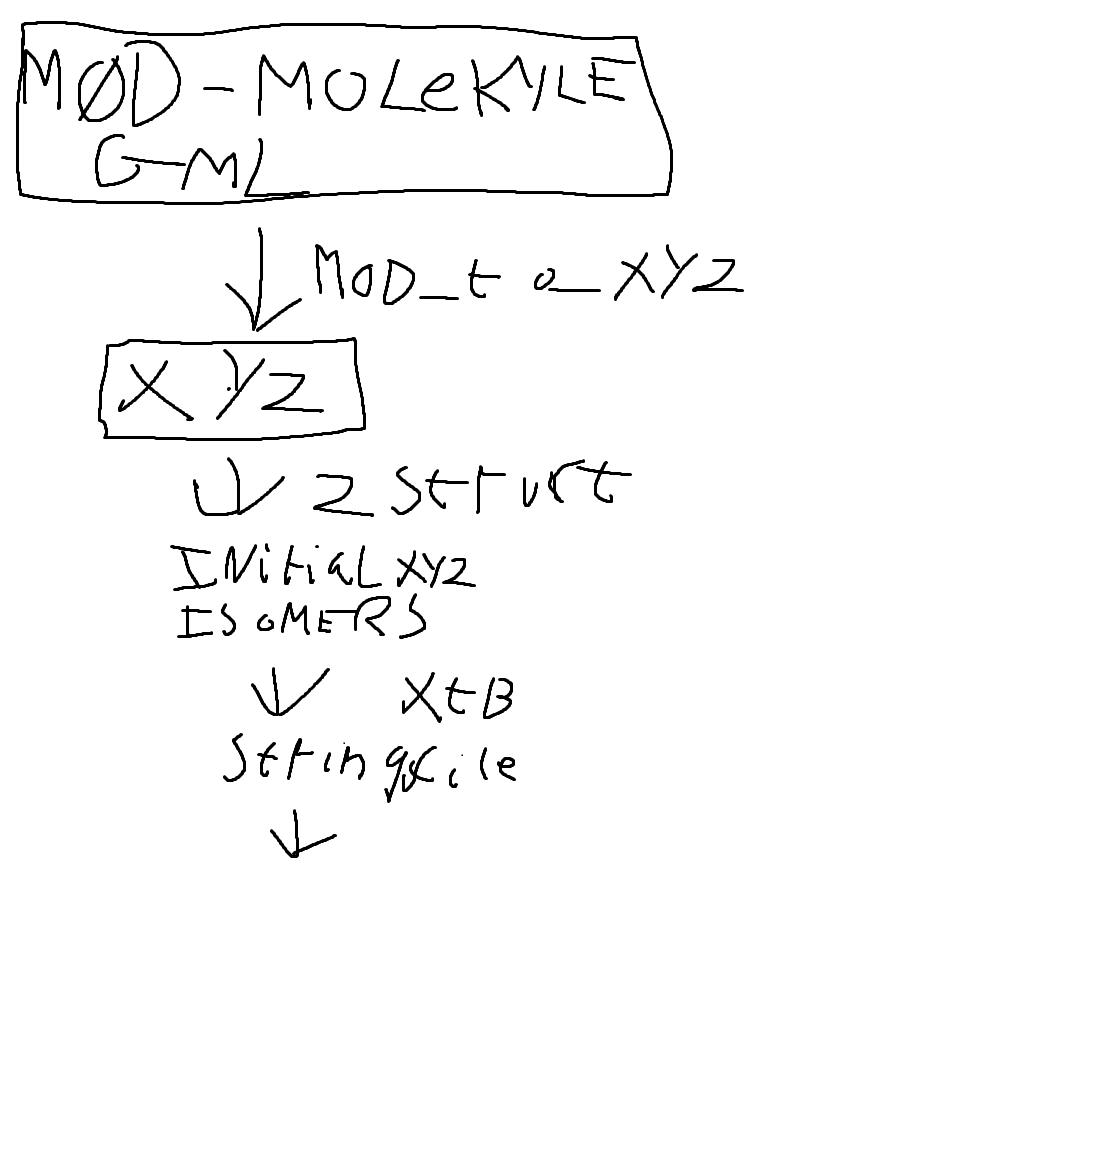 MØD - MOLeKYLE
GML
MOD_to_XYZ
XYZ
ZStruct
INitiaL XYZ
ISOMERS
XtB
Stringfile